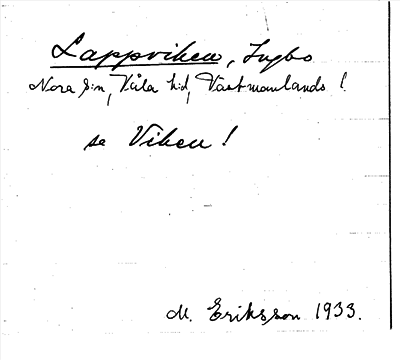 Lappviken, Ingbo
Nora s:n, Våla hd, Västmanlands l.
se Viken!
M. Eriksson 1933.